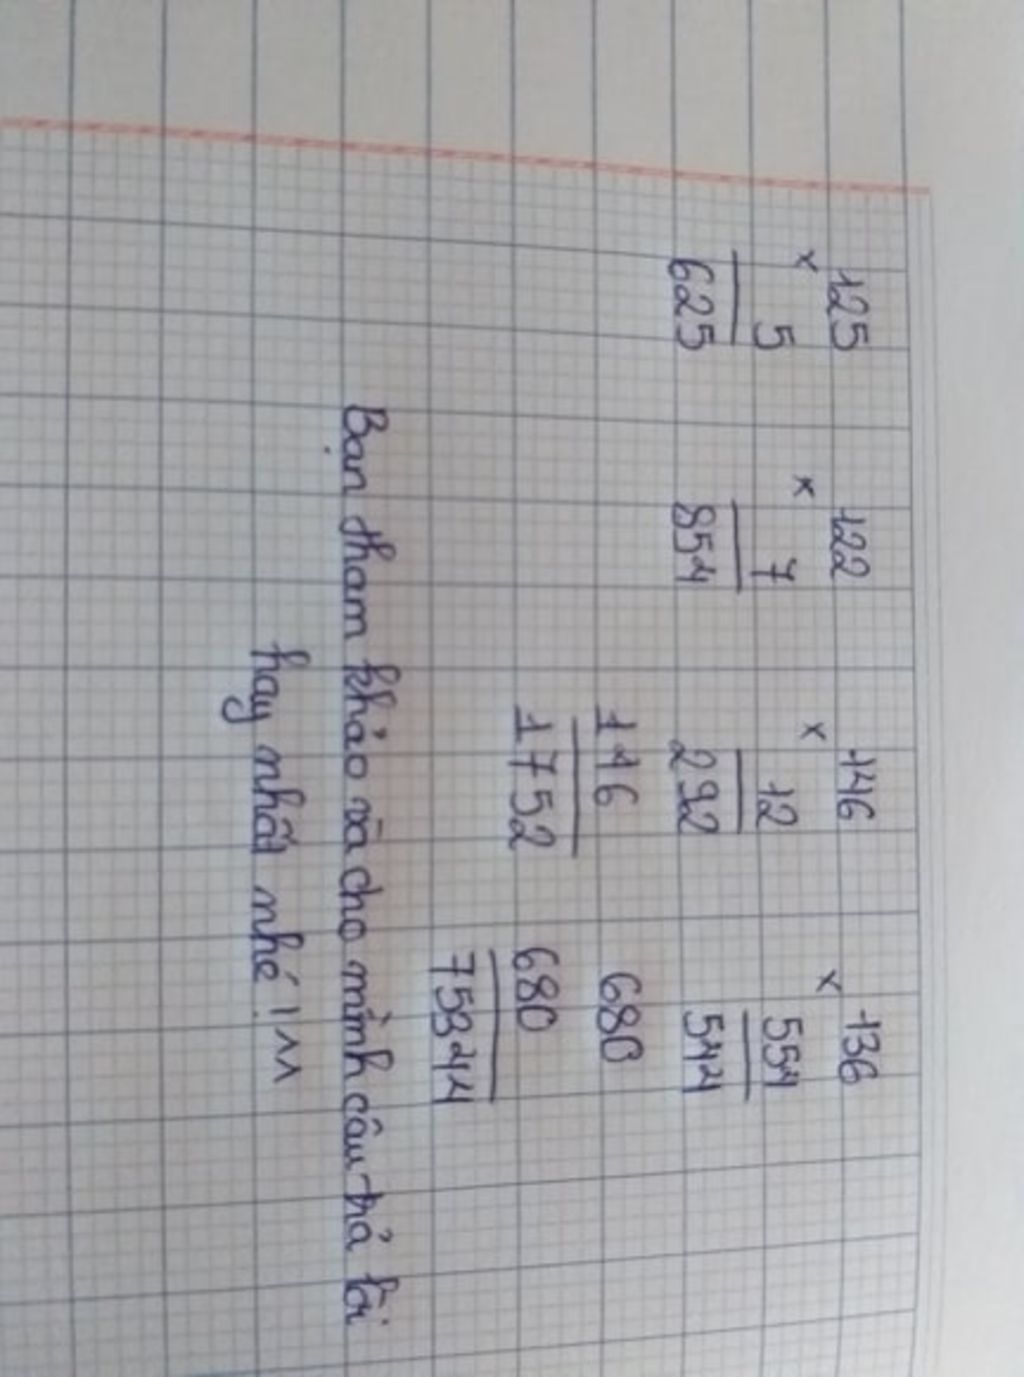 125 122 146 136
x x x x
5 7 12 554
625 854 292 544
146 680
1752 680
75344
Bạn tham khảo và cho mình câu trả lời
hay nhất nhé!^^